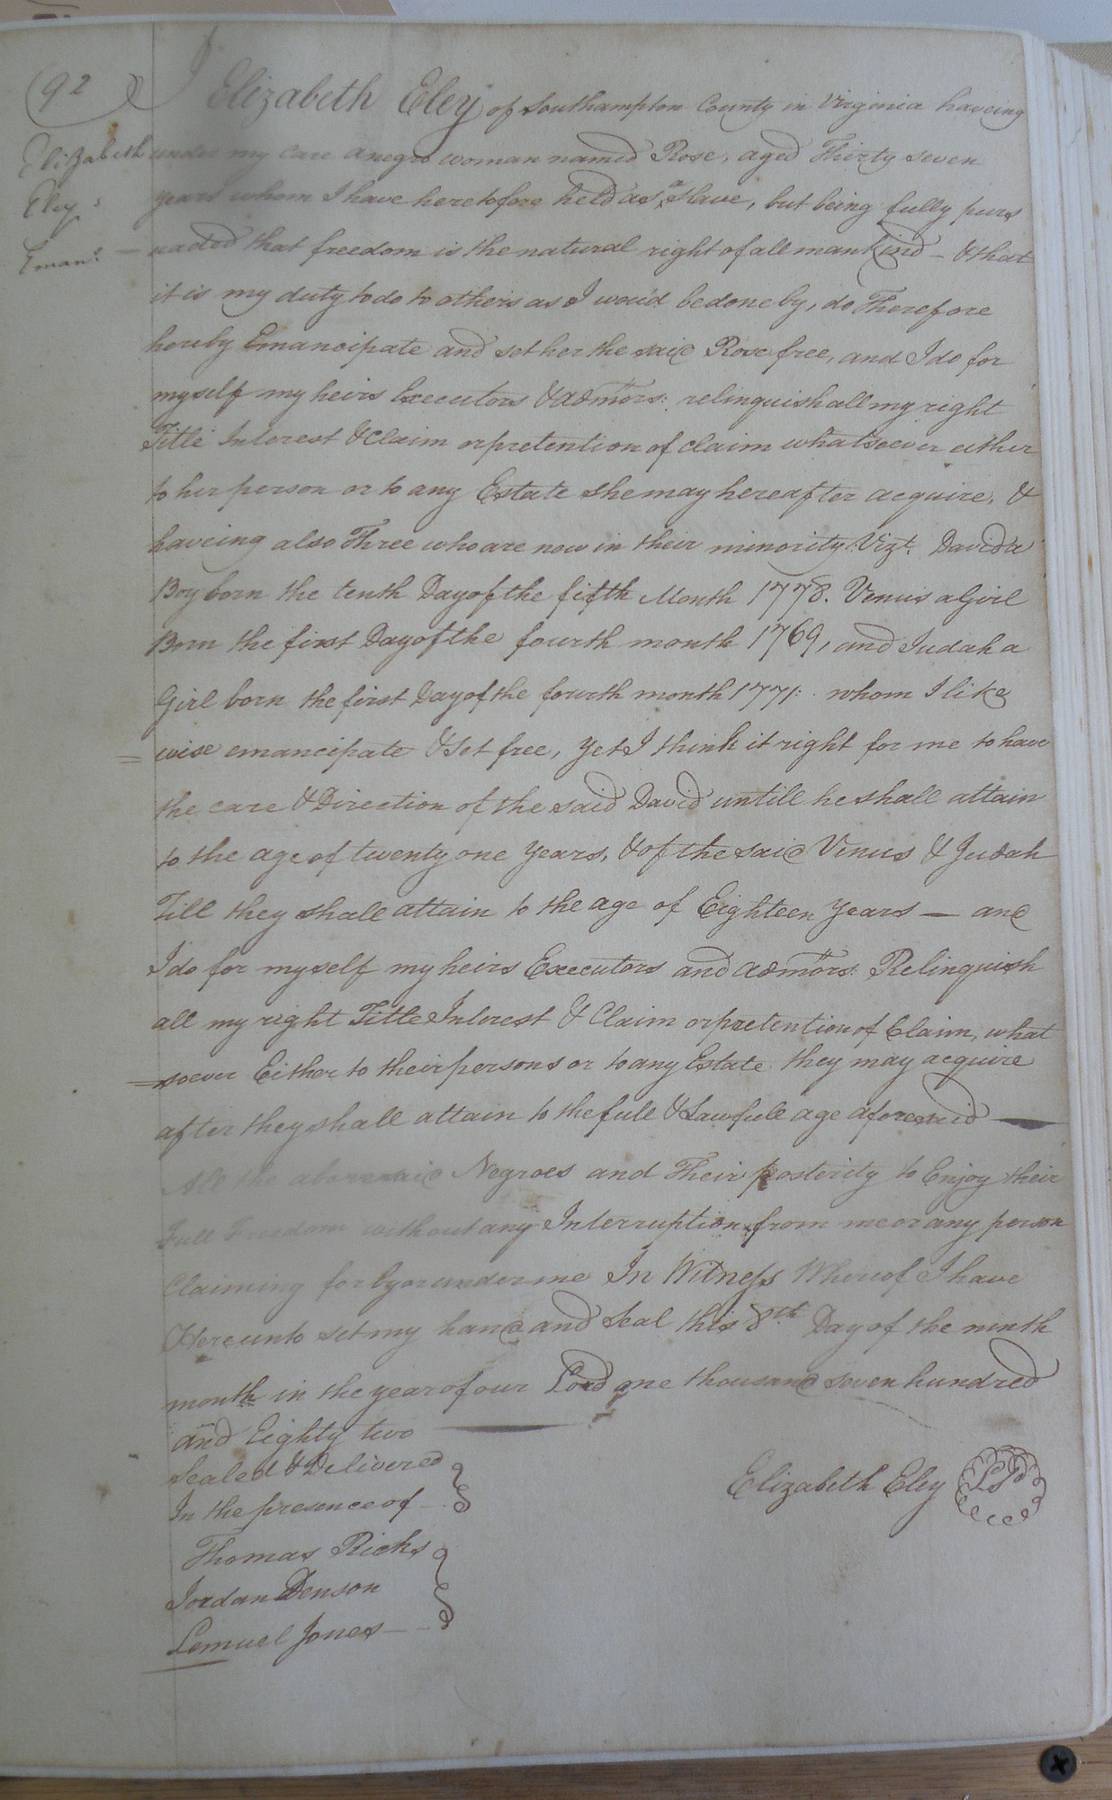 92
Elizabeth
Eley
Eman.n
I Elizabeth Eley of Southampton County in Virginia haveing
under my care a negro woman named Rose, aged Thirty seven
years whom I have heretofore held as a Slave, but being fully pers
uaded that freedom is the natural right of all mankind - & that
it is my duty to do to others as I would be done by, do Therefore
hereby Emancipate and set her the said Rose free, and I do for
myself my heirs Executors & admors: relinquish all my right
Title Interest & Claim or pretention of claim whatsoever either
to her person or to any Estate she may hereafter acquire, &
haveing also Three who are now in their minority Vizt. David a
Boy born the tenth Day of the fifth Month 1778. Venus a Girl
Born the first Day of the fourth month 1769, and Judah a
Girl born the first Day of the fourth month 1771: whom I like
= wise emancipate & set free, yet I think it right for me to have
the care & Direction of the said David untill he shall attain
to the age of twenty one years, & of the said Venus & Judah
Till they shall attain to the age of Eighteen Years — and
I do for myself my heirs Executors and admors: Relinquish
all my right Title Interest & Claim or pretention of Claim, what
= soever Either to their persons or to any Estate they may acquire
after they shall attain to the full & Lawfull age aforesaid —
All the abovesaid Negroes and Their posterity to Enjoy their
Full Freedom without any Interruption from me or any person
Claiming for by or under me In Witness Whereof I have
Hereunto set my hand and Seal this 8th Day of the ninth
month in the year of our Lord one thousand seven hundred
and Eighty two —
Sealed & Delivered
In the presence of
Elizabeth Eley LS
Thomas Ricks
Jordan Denson
Lemuel Jones